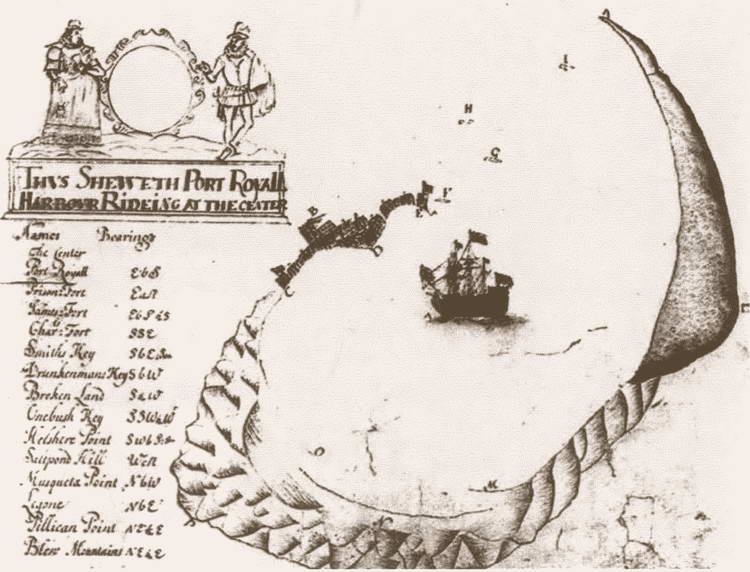 THVS SHEWETH PORT ROYALL
HARBOUR RIDEING AT THE CENTER
Names Bearings
The Center
Port Royall E b S
Prison: Fort East
James: Fort
Char: Fort S S E
Smiths Key S b E
Drunkenmans Key S b W
Broken Land S & W
Onebush Key
Helshire Point
Saltpond Hill West
Musqueta Point N b W
Legone N b E
Pillican Point N E & E
Blew Mountains N E & E
I
H
G
F
E
B
D
C
M